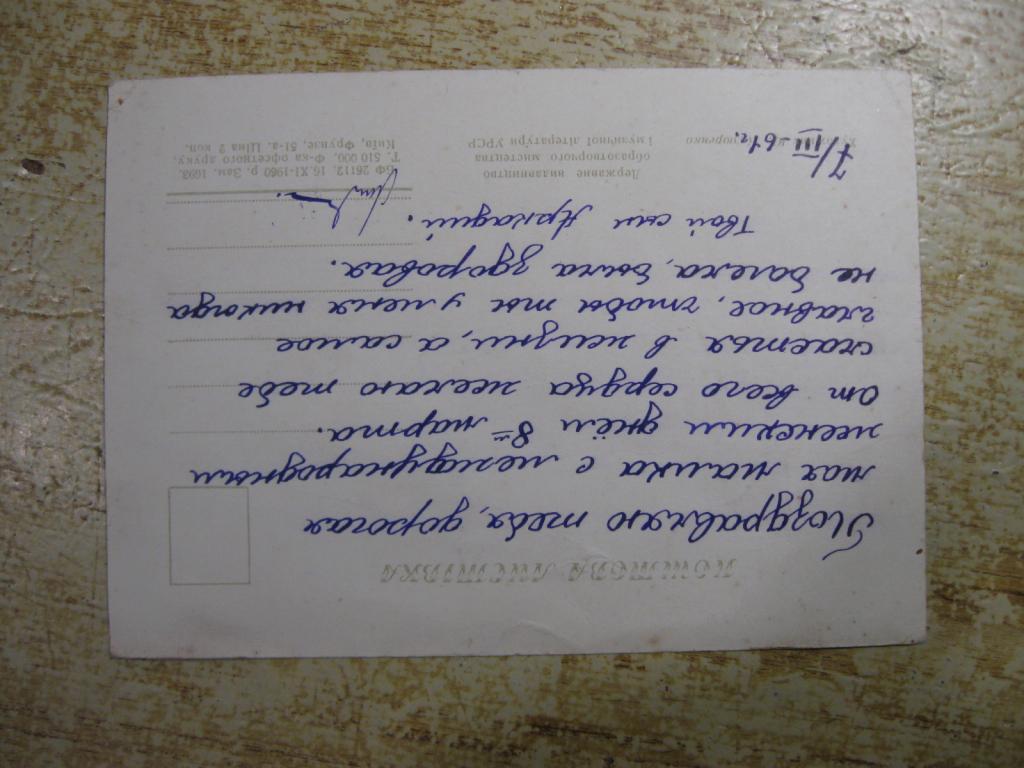 ПОШТОВА ЛИСТІВКА
Поздравляю тебя, дорогая
моя мамка с международным
женским днём 8ᵐ марта.
от всего сердца желаю тебе
счастья в жизни, а самое
главное, чтобы ты у меня никогда
не болела, была здоровая.
Твой сын Аркадий.
7/III-61г.
Державне видавництво
образотворчого мистецтва
і музичної літератури УРСР
БФ 26112. 16.XI-1960 р. Зам. 1693.
Т. 510 000. Ф-ка офсетного друку.
Київ, Фрунзе, 51-а. Ціна 2 коп.